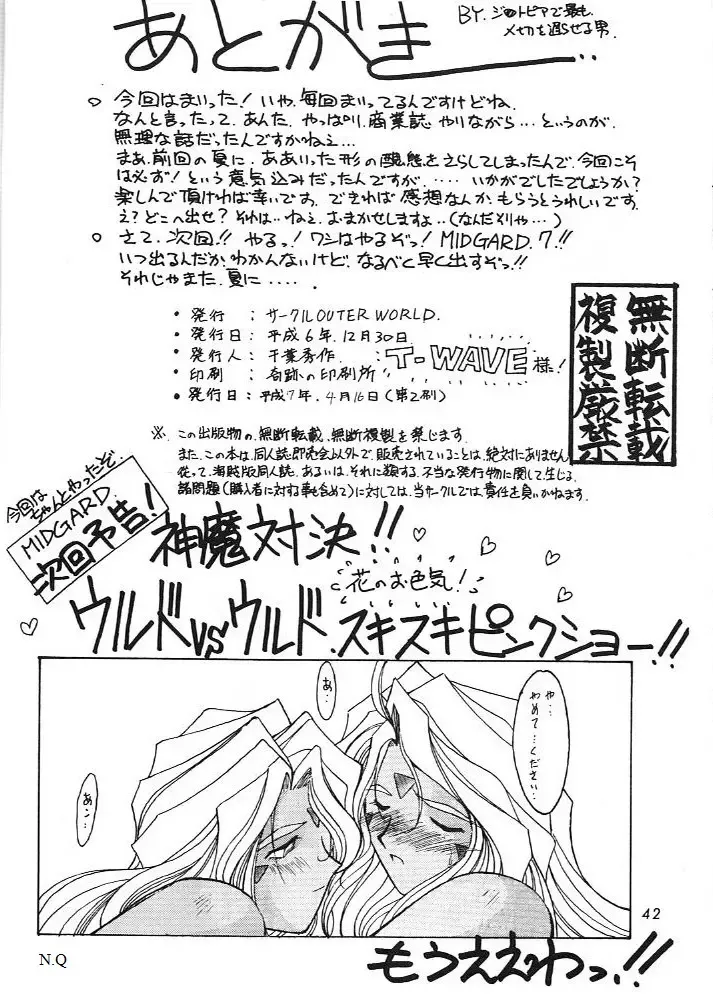 あとがき
BY.ジオトピアで最も
〆切を遅らせる男.
○ 今回はまいった!いや、毎回まいってるんですけどね、
なんと言ったって、あんた、やっぱり、商業誌やりながら…というのが、
無理な話だったんですかねえ…
まあ、前回の夏に、ああいった形の醜態をさらしてしまったんで、今回こそ
は必ず!という意気込みだったんですが、…‥いかがでしたでしょうか?
楽しんで頂ければ幸いです。できれば感想なんか、もらうとうれしいです。
え?どこへ出せ?それは‥ねえ、おまかせしますよ‥(なんだそりゃ…)
○ さて、次回!!やるっ!ワシはやるぞっ!MIDGARD.7!!
いつ出るんだか、わかんないけど、なるべく早く出すぞっ!!
それじゃまた、夏に‥‥.
・発行 : サークルOUTER WORLD.
・発行日: 平成6年.12月30日.
・発行人: 千葉秀作.
・印刷 : 奇跡の印刷所 : T-WAVE様!
・発行日: 平成7年.4月16日(第2刷)
無断転載
複製厳禁
※.この出版物の、無断転載、無断複製を禁じます.
また、この本は、同人誌即売会以外で、販売されていることは、絶対にありません
従って、海賊版同人誌、あるいは、それに類する、不当な発行物に関して生じる、
諸問題(購入者に対する事も含めて)に対しては、当サークルでは、責任を負いかねます.
今回は
ちゃんとやったぞ.
MIDGARD.
次回予告!
神魔対決!!
花のお色気!
ウルドvsウルド.スキスキピンクショー!!
や…
やめて…ください…
あ…
あン…
42
N.Q
もうええわっ.!!